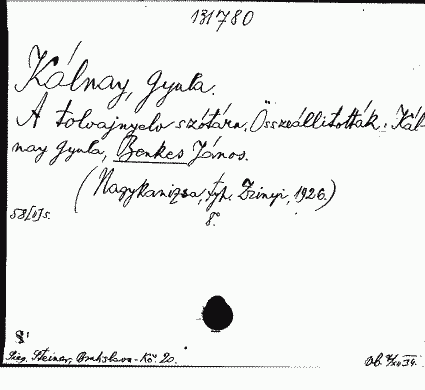 131780
Kálnay, Gyula.
A tolvajnyelv szótára. Összeállitották: Kál-
nay Gyula, Benkes János.
(Nagykanizsa, tyh. Zrinyi, 1926.)
58[1]s. 8°.
8'
Steiner, Bratislava - Kč. 20.